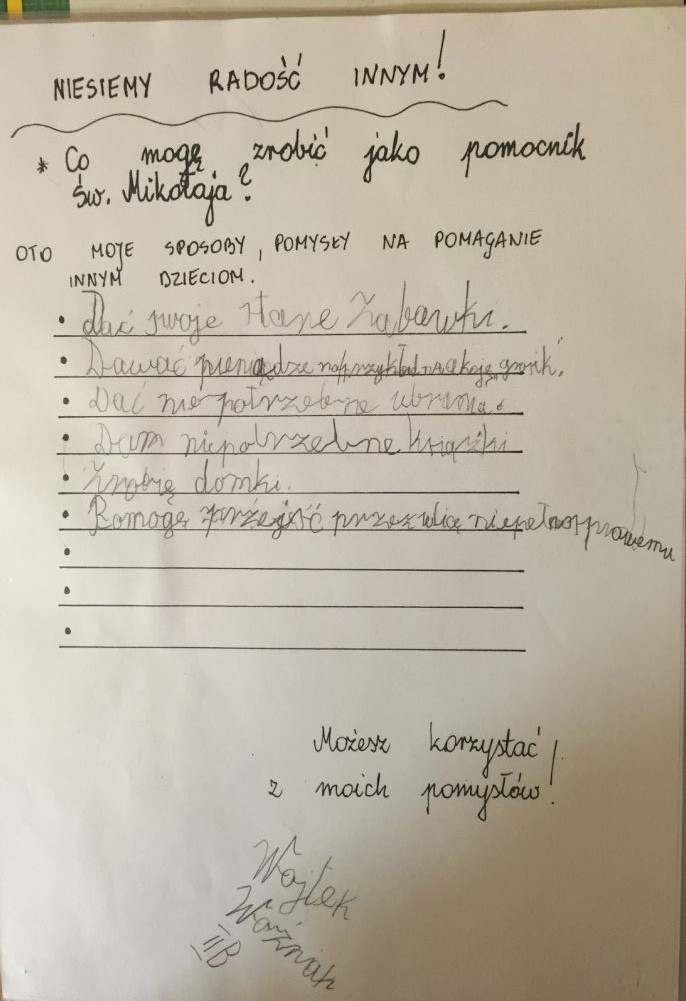 NIESIEMY RADOŚĆ INNYM!
* Co mogę zrobić jako pomocnik
Św. Mikołaja?
OTO MOJE SPOSOBY, POMYSŁY NA POMAGANIE
INNYM DZIECIOM.
• Dać swoje stare zabawki.
• Dawać pieniądze naprzykład na akcję gorik.
• Dać niepotrzebne ubrania.
• Dam niepotrzebne książki
• Zrobię domki.
• Pomogę przejść przez ulicę niepełnosprawemu
•
•
•
Możesz korzystać
z moich pomysłów!
Wojtek
Woźniak
IIB